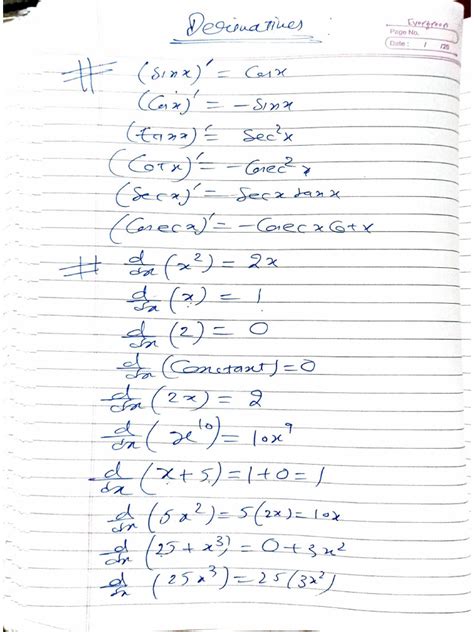 Derivatives
Evergreen
Page No.
Date: / /20
# (Sinx)' = Cosx
(Cosx)' = -Sinx
(tanx)' = Sec²x
(Cotx)' = -Cosec²x
(Secx)' = Secx tanx
(Cosecx)' = -CosecxCotx
# d/dx (x²) = 2x
d/dx (x) = 1
d/dx (2) = 0
d/dx (Constant) = 0
d/dx (2x) = 2
d/dx (x¹⁰) = 10x⁹
d/dx (x+5) = 1+0 = 1
d/dx (5x²) = 5(2x) = 10x
d/dx (25+x³) = 0+3x²
d/dx (25x³) = 25(3x²)